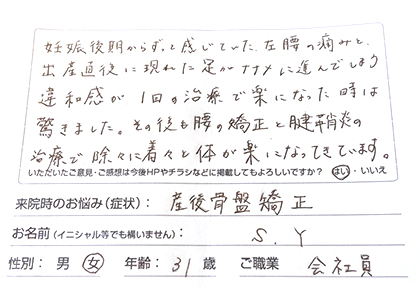 妊娠後期からずっと感じていた左腰の痛みと、
出産直後に現れた足がナナメに進んでしまう
違和感が1回の治療で楽になった時は
驚きました。その後も腰の矯正と腱鞘炎の
治療で除々に着々と体が楽になってきています。
いただいたご意見・ご感想は今後HPやチラシなどに掲載してもよろしいですか? はい・いいえ
来院時のお悩み(症状): 産後骨盤矯正
お名前(イニシャル等でも構いません): S.Y
性別: 男 女 年齢: 31 歳 ご職業 会社員